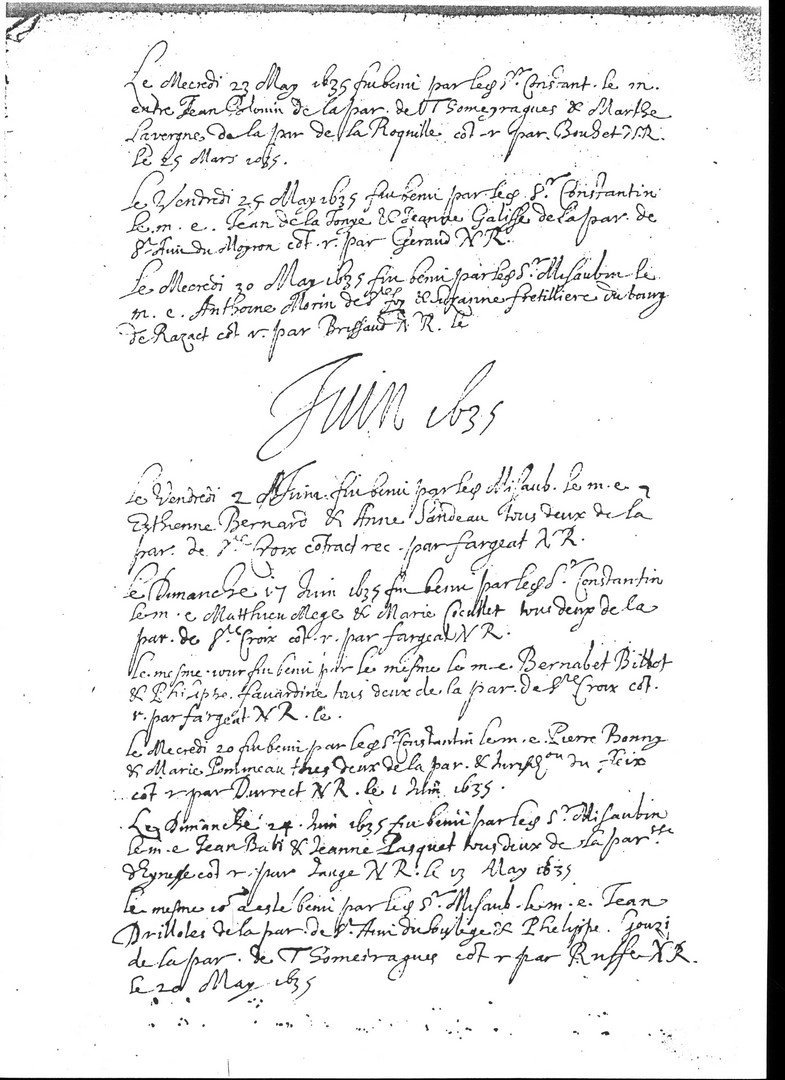 Le Mecredi 23 May 1635 fu beni par led Sr. Constant. le m.
entre Jean de la par. de Thomeyragues & Marthe
Lavergne de la par de la Roquille cot r par. Bouhet N.R.
le 25 Mars 1635.
Le Vendredi 25 May 1635 fu beni par led Sr. Constantin
le m. e. Jean de la & Jeanne de la par. de
St. du cot. r. par Geraud N R.
Le Mecredi 30 May 1635 fu beni par led Sr. Misaubin le
m. e. Anthoine Morin de Ste Foy & Suzanne fretilliere du bourg
de Razact cot r. par Briffaud N R. le
Juin 1635
Le Vendredi 2 Juin fu beni par led Misaub. le m. e
Esthenne Bernard & Anne Sandeau tous deux de la
par. de Ste Croix cotract rec. par fargeat N R.
le Dimanche 17 Juin 1635 fu beni par led Sr. Constantin
le m. e Matthieu Mege & Marie tous deux de la
par. de Ste Croix cot. r. par fargeat N R.
le mesme iour fu beni par le mesme le m. e. Bernabet Billot
& Philippe favardine tous deux de la par. de Ste Croix cot.
r. par fargeat N R. le.
le Mecredi 20 fu beni par led Sr. Constantin le m. e. Pierre Bonny
& Marie Pommeau tous deux de la par. & du fleix
cot r par Durrect N R. le 1 Juin 1635.
Le Dimanche 24 Juin 1635 fu beni par led Sr. Misaubin
le m. e Jean Bati & Jeanne Pasquet tous deux de la par
d'Eynesse cot r. par Jange N R. le 13 May 1635
le mesme ior a esté beni par led Sr. Misaub. le m. e. Jean
Drilloles de la par. de St. & Phelippe. Gouzi
de la par. de Thomeiragues cot r par Ruffe N R.
le 20 May 1635